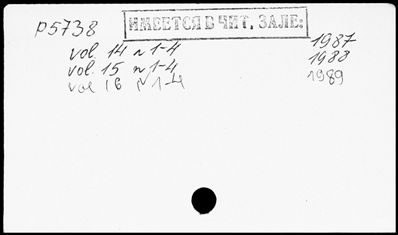 P5738 ИМЕЕТСЯ В ЧИТ. ЗАЛЕ:
vol. 14 n 1-4 1987
vol. 15 n 1-4 1988
vol 16 n 1-4 1989